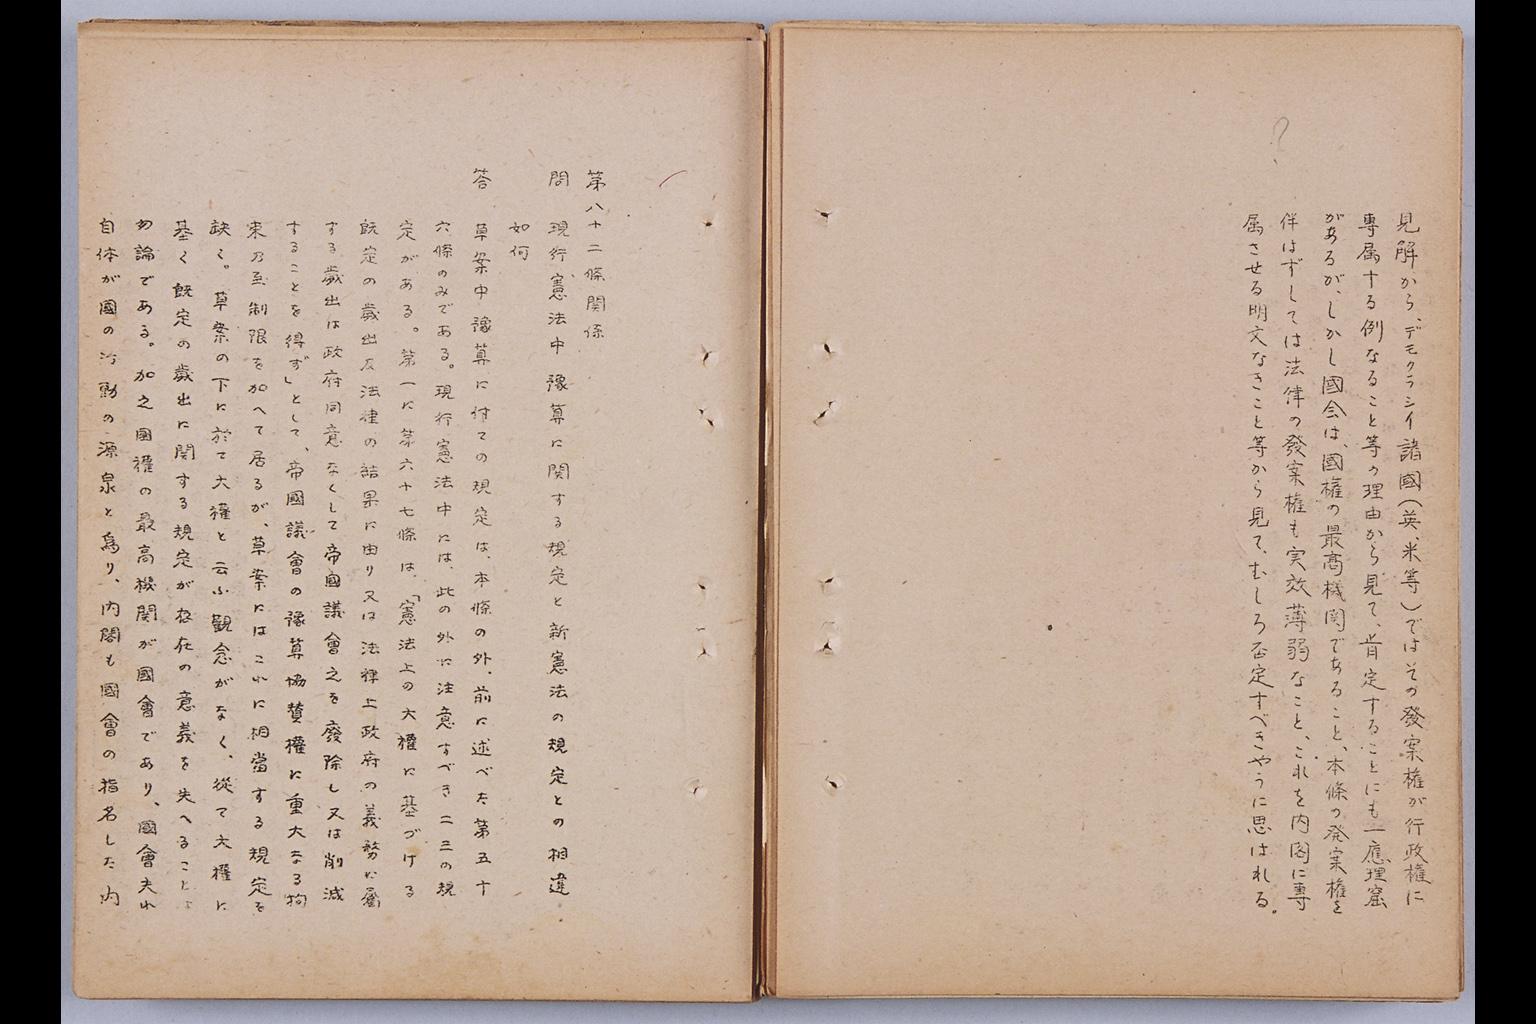 ?
見解から、デモクラシイ諸國(英、米等)ではその發案権が行政権に
専属する例なること等の理由から見て、肯定することにも一應理窟
があるが、しかし國会は、國権の最高機関であること、本條の発案権を
伴はずしては法律の發案権も実效薄弱なこと、これを内閣に専
属させる明文なきこと等から見て、むしろ否定すべきやうに思はれる。
第八十二條関係
問 現行憲法中豫算に関する規定と新憲法の規定との相違
如何
答 草案中豫算に付ての規定は、本條の外、前に述べた第五十
六條のみである。現行憲法中には、此の外に注意すべき二三の規
定がある。第一に第六十七條は、「憲法上の大權に基づける
既定の歳出及法律の結果に由り又は法律上政府の義務に屬
する歳出は政府同意なくして帝國議會之を廢除し又は削減
することを得ず」として、帝國議會の豫算協贊權に重大なる拘
束乃至制限を加へて居るが、草案にはこれに相當する規定を
缺く。草案の下に於て大權と云ふ觀念がなく、從て大權に
基く既定の歳出に関する規定が存在の意義を失へることは
勿論である。加之國權の最高機関が國會であり、國會夫れ
自体が國の活動の源泉と為り、内閣も國會の指名した内